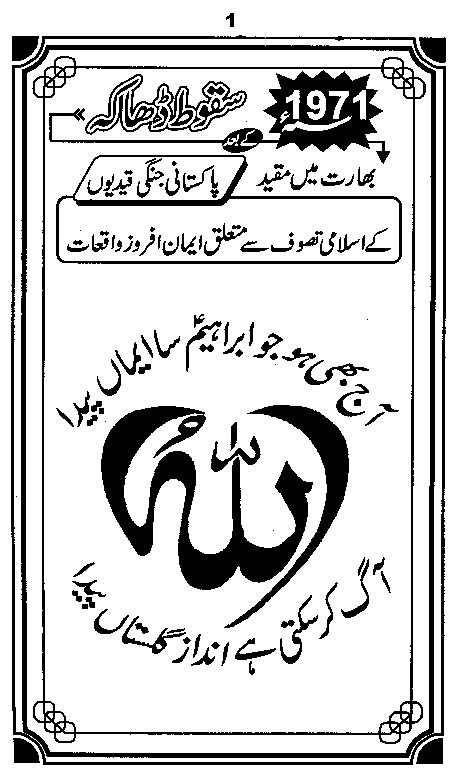 1
1971ء سقوط ڈھاکہ
کے بعد
بھارت میں مقید پاکستانی جنگی قیدیوں
کے اسلامی تصوف سے متعلق ایمان افروز واقعات
آج بھی ہو جو ابراہیمؑ سا ایماں پیدا
اللہ
آگ کر سکتی ہے اندازِ گلستاں پیدا